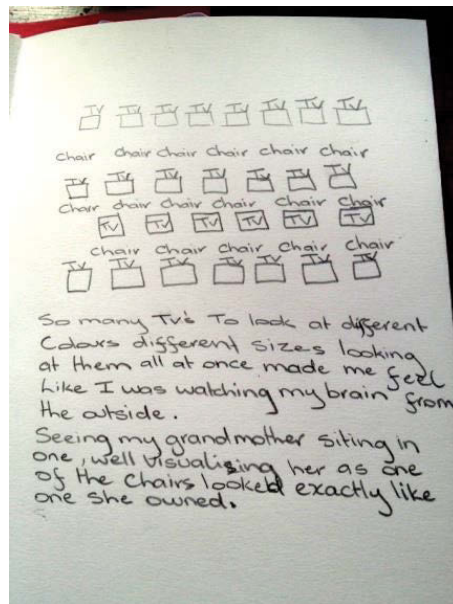 TV TV TV TV TV TV TV TV
chair chair chair chair chair chair
TV TV TV TV TV TV TV
chair chair chair chair chair chair
TV TV TV TV TV TV
chair chair chair chair chair
TV TV TV TV TV TV TV
So many TV's To look at different
Colours different sizes looking
at them all at once made me feel
Like I was watching my brain from
the outside.
Seeing my grandmother siting in
one, well visualising her as one
of the chairs looked exactly like
one she owned.